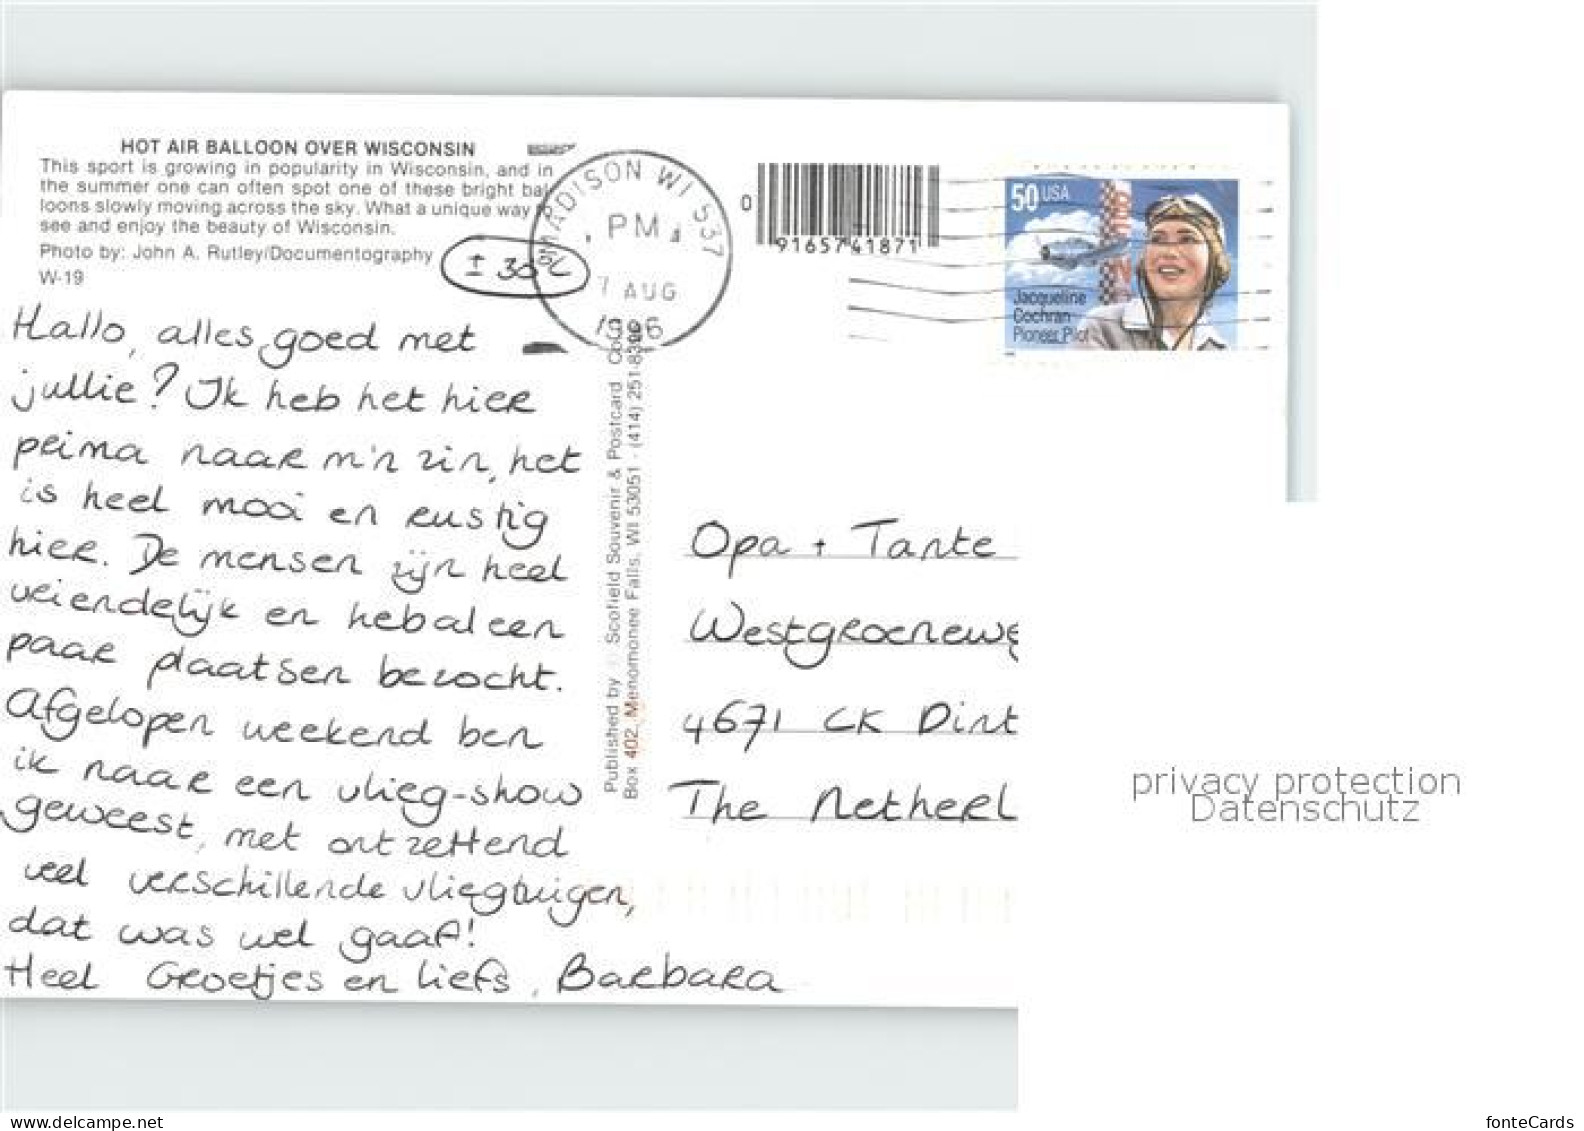 HOT AIR BALLOON OVER WISCONSIN
This sport is growing in popularity in Wisconsin, and in
the summer one can often spot one of these bright bal-
loons slowly moving across the sky. What a unique way
see and enjoy the beauty of Wisconsin.
Photo by: John A. Rutley/Documentography
W-19
± 30°C
MADISON WI 537
PM
7 AUG
1996
0
9165741871
50 USA
Jacqueline
Cochran
Pioneer Pilot
Hallo, alles goed met
jullie? Ik heb het hier
prima naar m'n zin, het
is heel mooi en rustig
hier. De mensen zijn heel
vriendelijk en heb al een
paar plaatsen bezocht.
Afgelopen weekend ben
ik naar een vlieg-show
geweest, met ontzettend
veel verschillende vliegtuigen,
dat was wel gaaf!
Heel Groetjes en liefs, Barbara
Published by © Scofield Souvenir & Postcard Co.
Box 402, Menomonee Falls, WI 53051 - (414) 251-83
Opa + Tante
Westgroenewe
4671 CK Dint
The Netherl
privacy protection
Datenschutz
www.delcampe.net
fonteCards